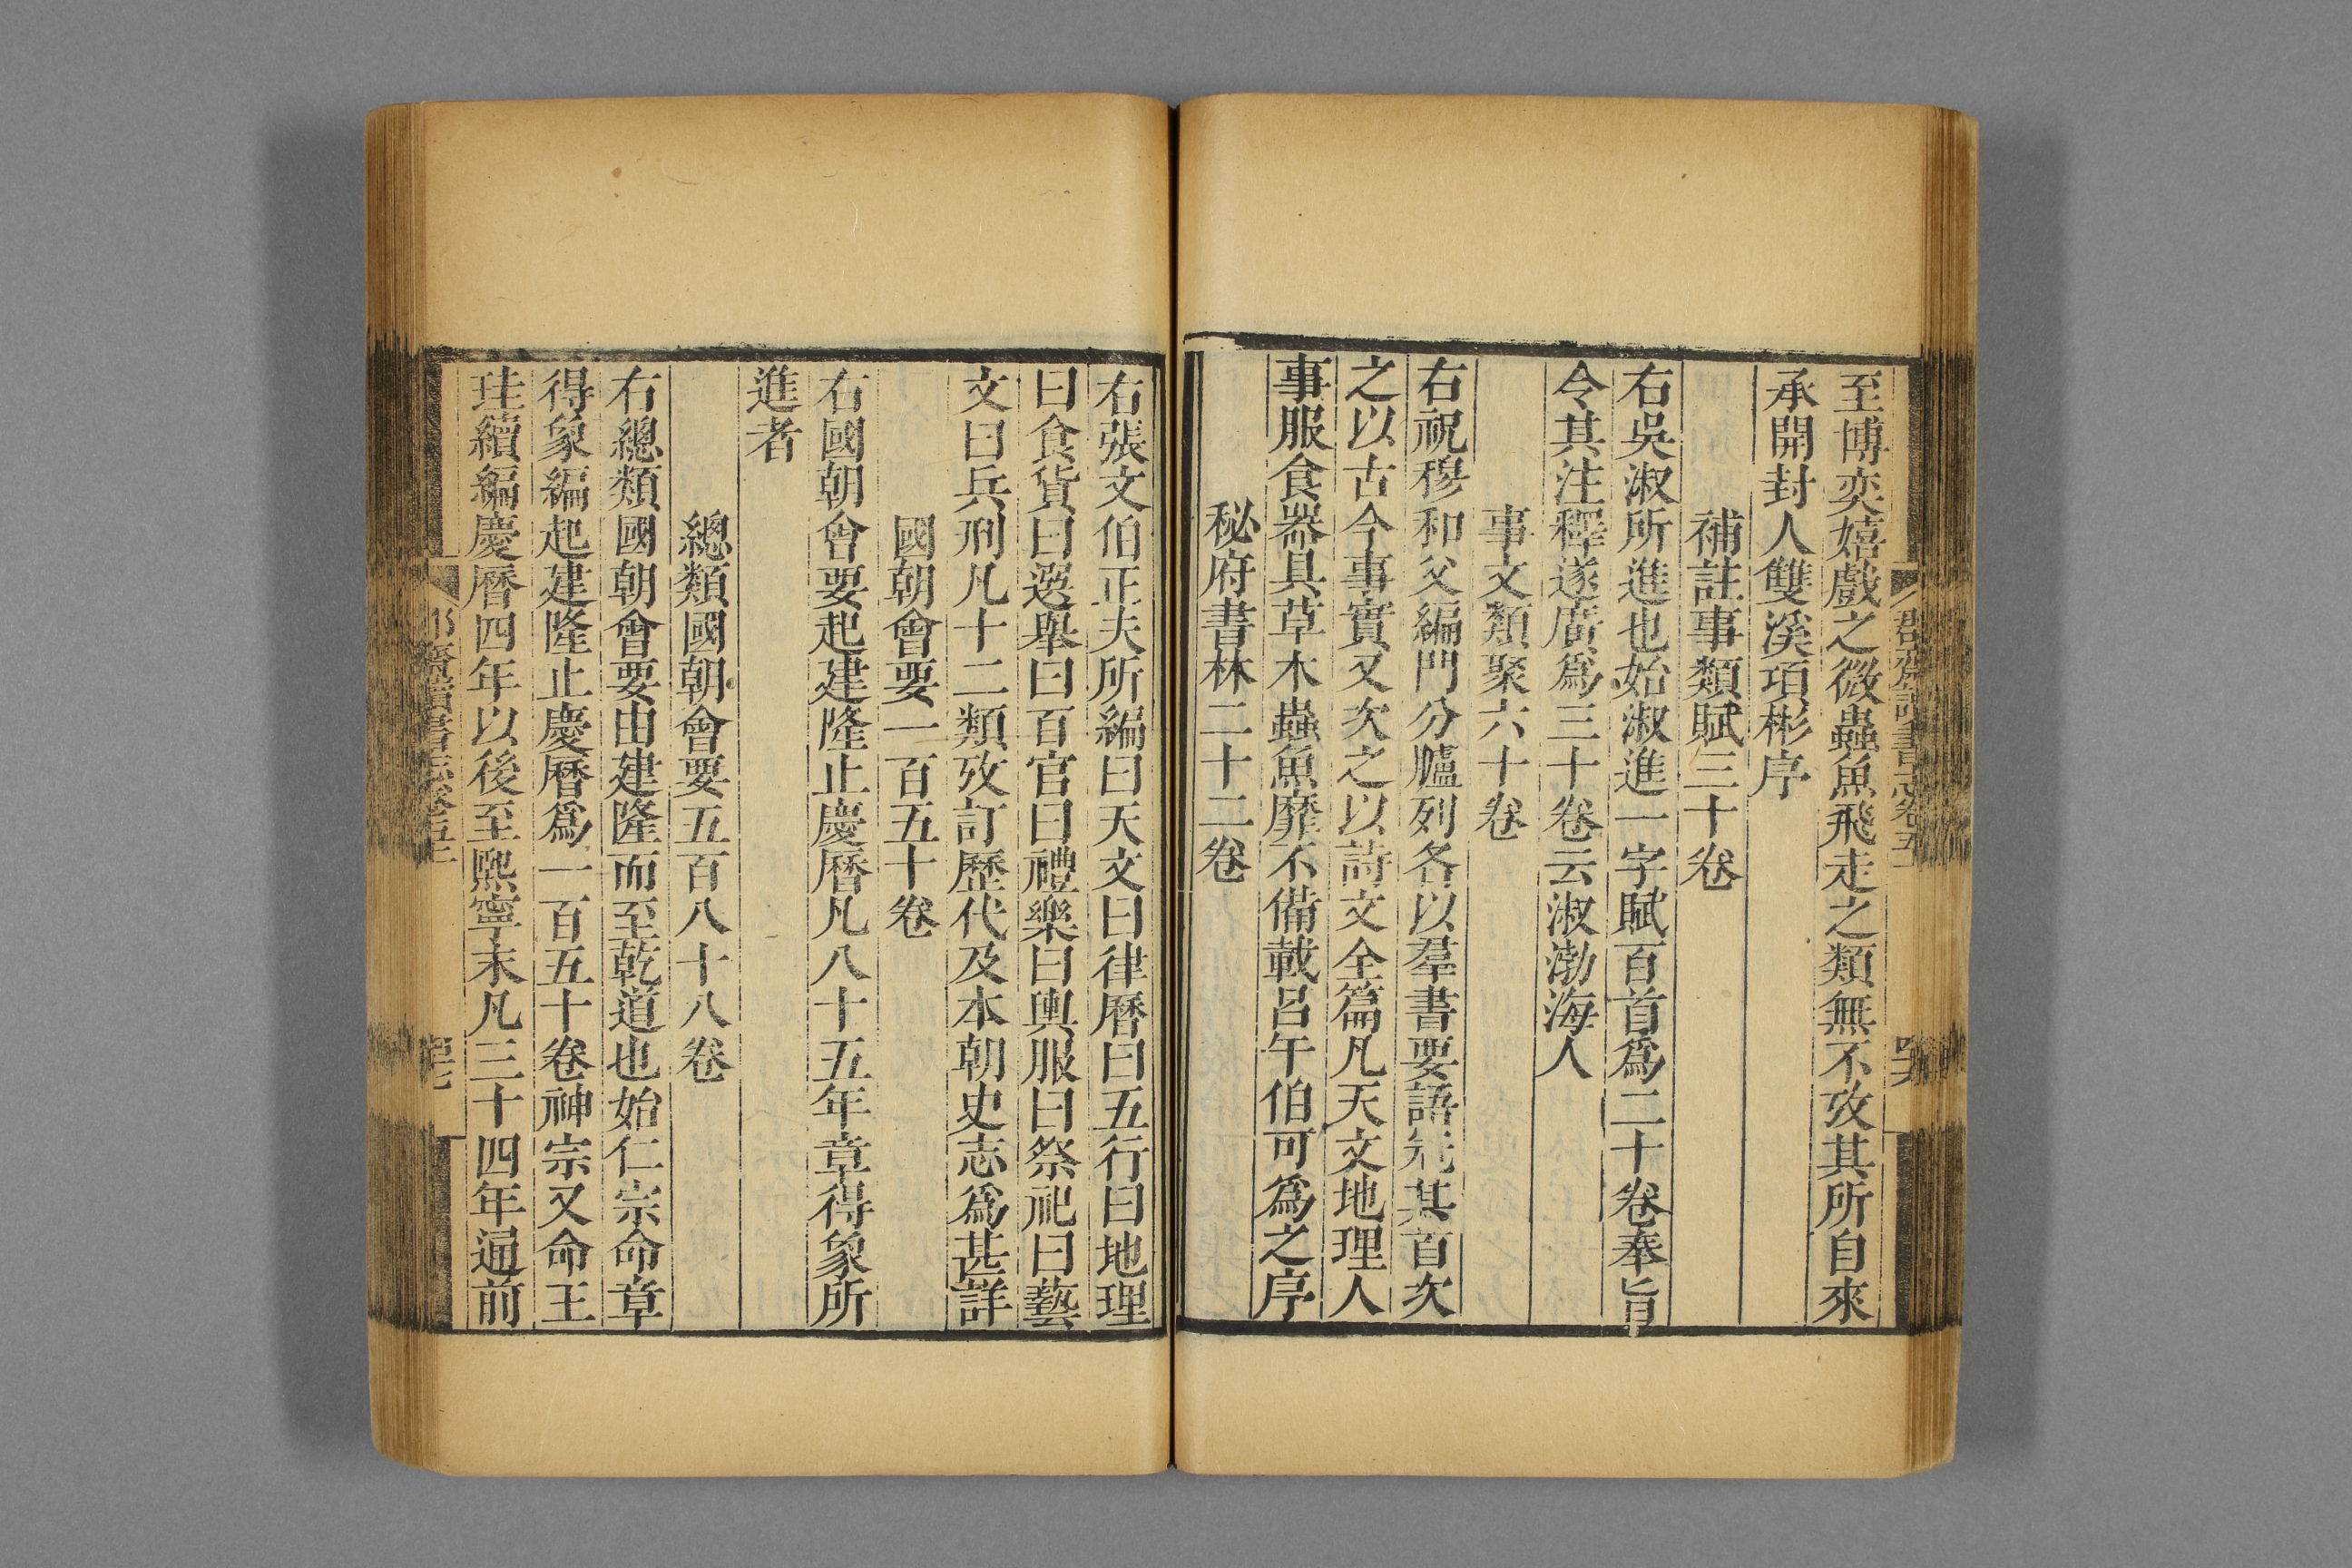 至博奕嬉戲之微蟲魚飛走之類無不攷其所自來
承開封人雙溪項彬序
補註事類賦三十卷
右吳淑所進也始淑進一字賦百首爲二十卷奉旨
令其注釋遂廣爲三十卷云淑渤海人
事文類聚六十卷
右祝穆和父編門分臚列各以羣書要語先其首次
之以古今事實又次之以詩文全篇凡天文地理人
事服食器具草木蟲魚靡不備載呂午伯可爲之序
秘府書林二十二卷
右張文伯正夫所編曰天文曰律曆曰五行曰地理
曰食貨曰選舉曰百官曰禮樂曰輿服曰祭祀曰藝
文曰兵刑凡十二類攷訂歷代及本朝史志爲甚詳
國朝會要一百五十卷
右國朝會要起建隆止慶曆凡八十五年章得象所
進者
總類國朝會要五百八十八卷
右總類國朝會要由建隆而至乾道也始仁宗命章
得象編起建隆止慶曆爲一百五十卷神宗又命王
珪續編慶曆四年以後至熙寧末凡三十四年通前